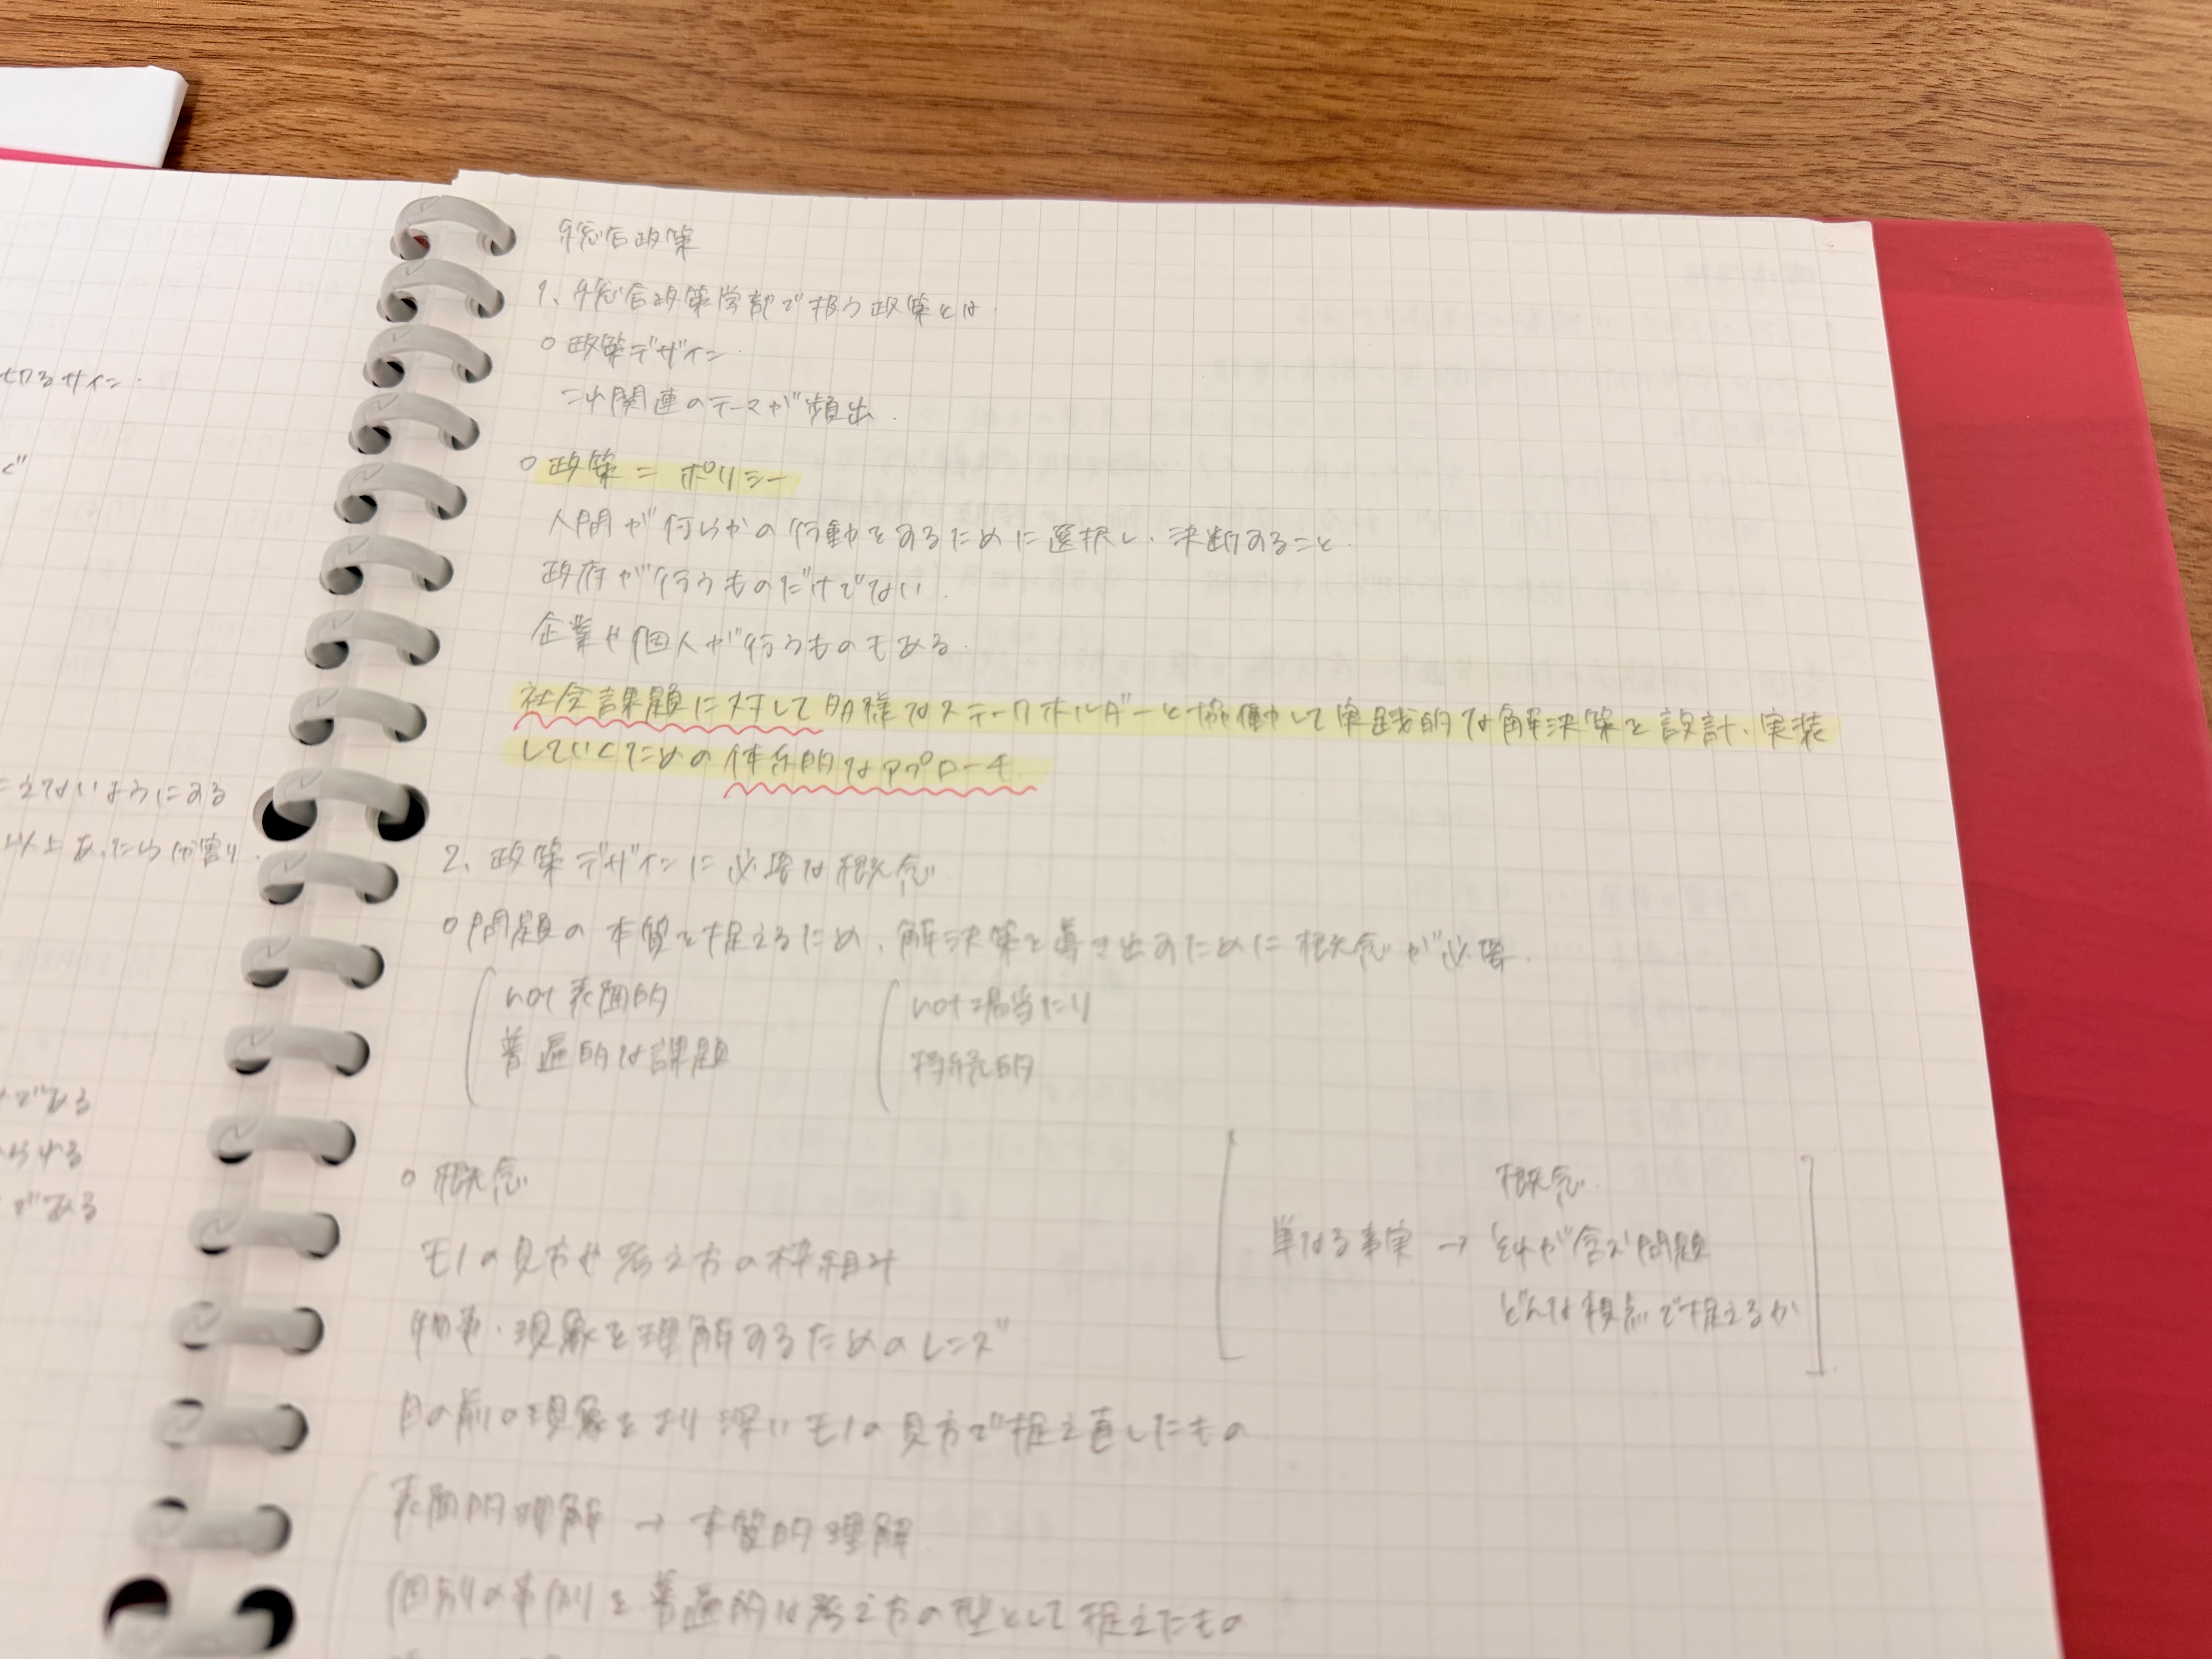 切るサイン.
ぐ
こえないようにする
以上あったら
である
られる
がある
総合政策
1、総合政策学部で扱う政策とは.
○ 政策デザイン.
これ関連のテーマが頻出.
○ 政策 = ポリシー
人間が何らかの行動をするために選択し、決断すること.
政府が行うものだけでない.
企業や個人が行うものもある.
社会課題に対して多様なステークホルダーと協働して実践的な解決策を設計、実装
していくための体系的なアプローチ.
2、政策デザインに必要な概念
○ 問題の本質を捉えるため、解決策を導き出すために概念が必要.
not 表面的
普遍的な課題
not 場当たり
持続的
○ 概念
モノの見方や考え方の枠組み
物事・現象を理解するためのレンズ
目の前の現象をより深いモノの見方で捉え直したもの
概念.
単なる事実 → それが含む問題
どんな視点で捉えるか
表面的理解 → 本質的理解
個別の事例を普遍的な考え方の型として捉えたもの